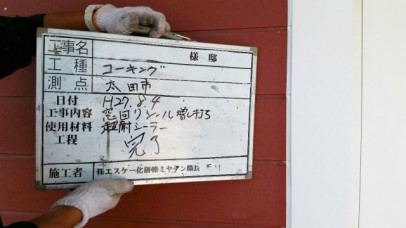 工事名 様邸
工種 コーキング
測点 太田市
日付 H27.8.4
工事内容 窓回りシール増し打ち
使用材料 超耐シーラー
工程 完了
施工者 ㈱エスケー化研㈱ミヤケン